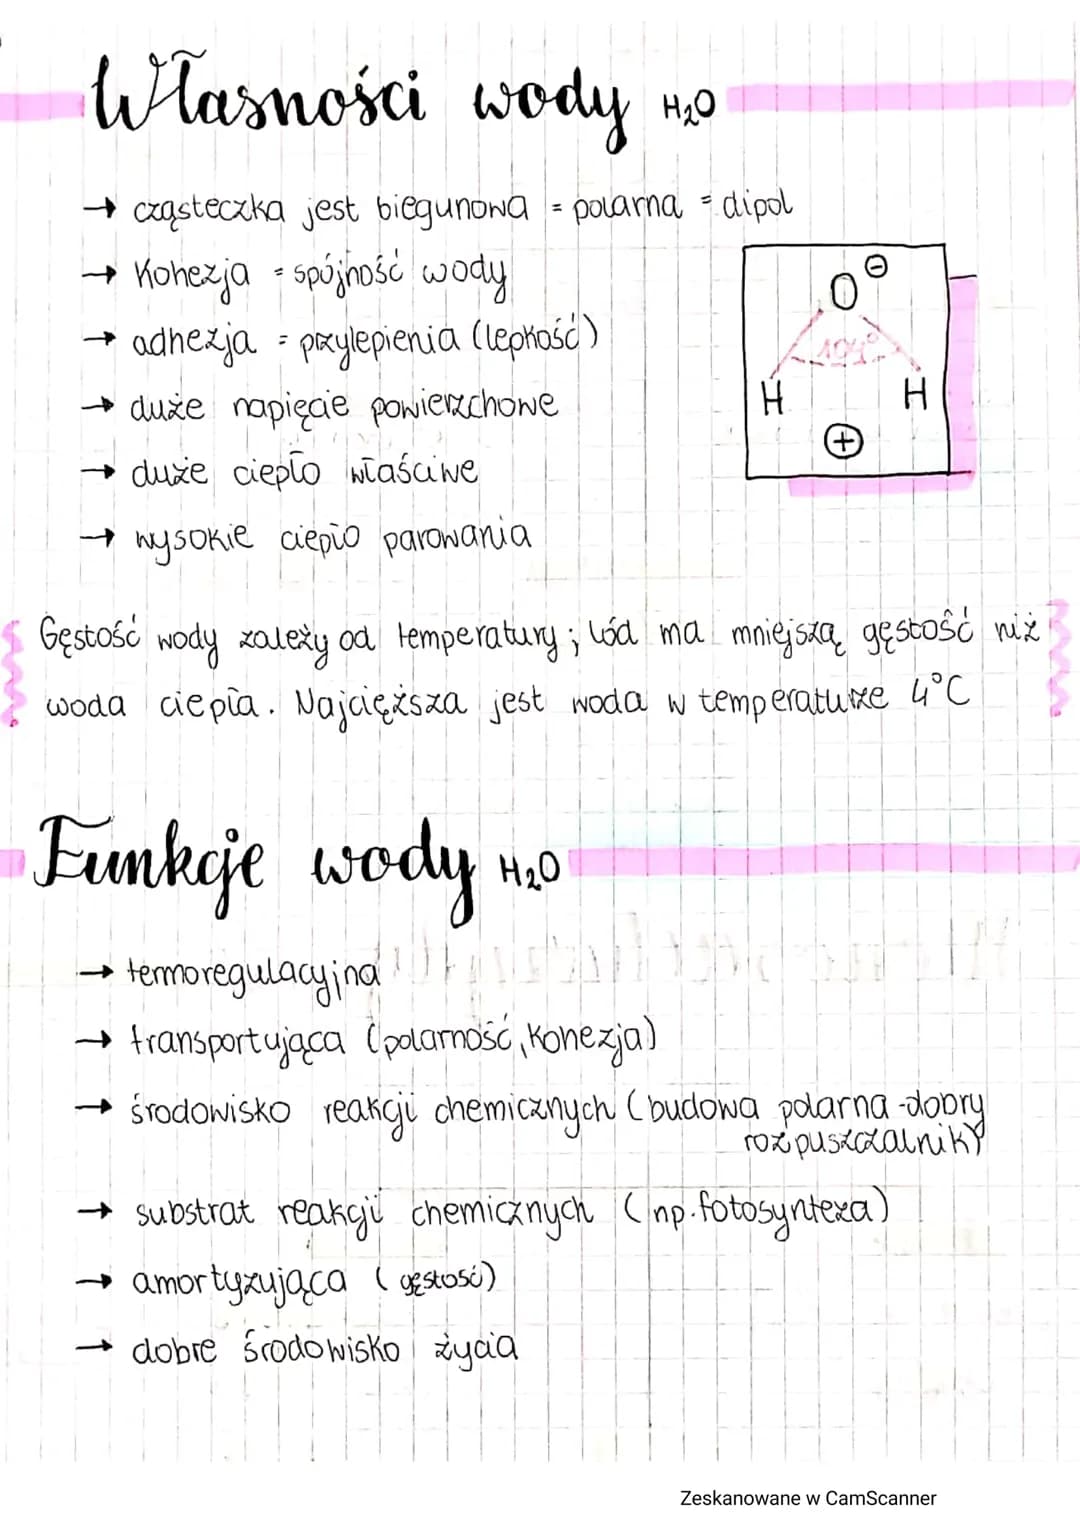 Własności wody H₂O
→ cząsteczka jest biegunowa = polarna = dipol
→ Kohezja = spójność wody
→ adhezja = przylepienia (lepkość)
→ duże napięcie powierzchowe
→ duże ciepło właściwe
→ wysokie ciepło parowania
O ⊖
104°
H H
⊕
Gęstość wody zależy od temperatury; lód ma mniejszą gęstość niż
woda ciepła. Najcięższa jest woda w temperaturze 4°C
Funkcje wody H₂O
→ termoregulacyjna
→ transportująca (polarność, kohezja)
→ środowisko reakcji chemicznych (budowa polarna - dobry
rozpuszczalnik)
→ substrat reakcji chemicznych (np. fotosynteza)
→ amortyzująca (gęstość)
→ dobre środowisko życia
Zeskanowane w CamScanner